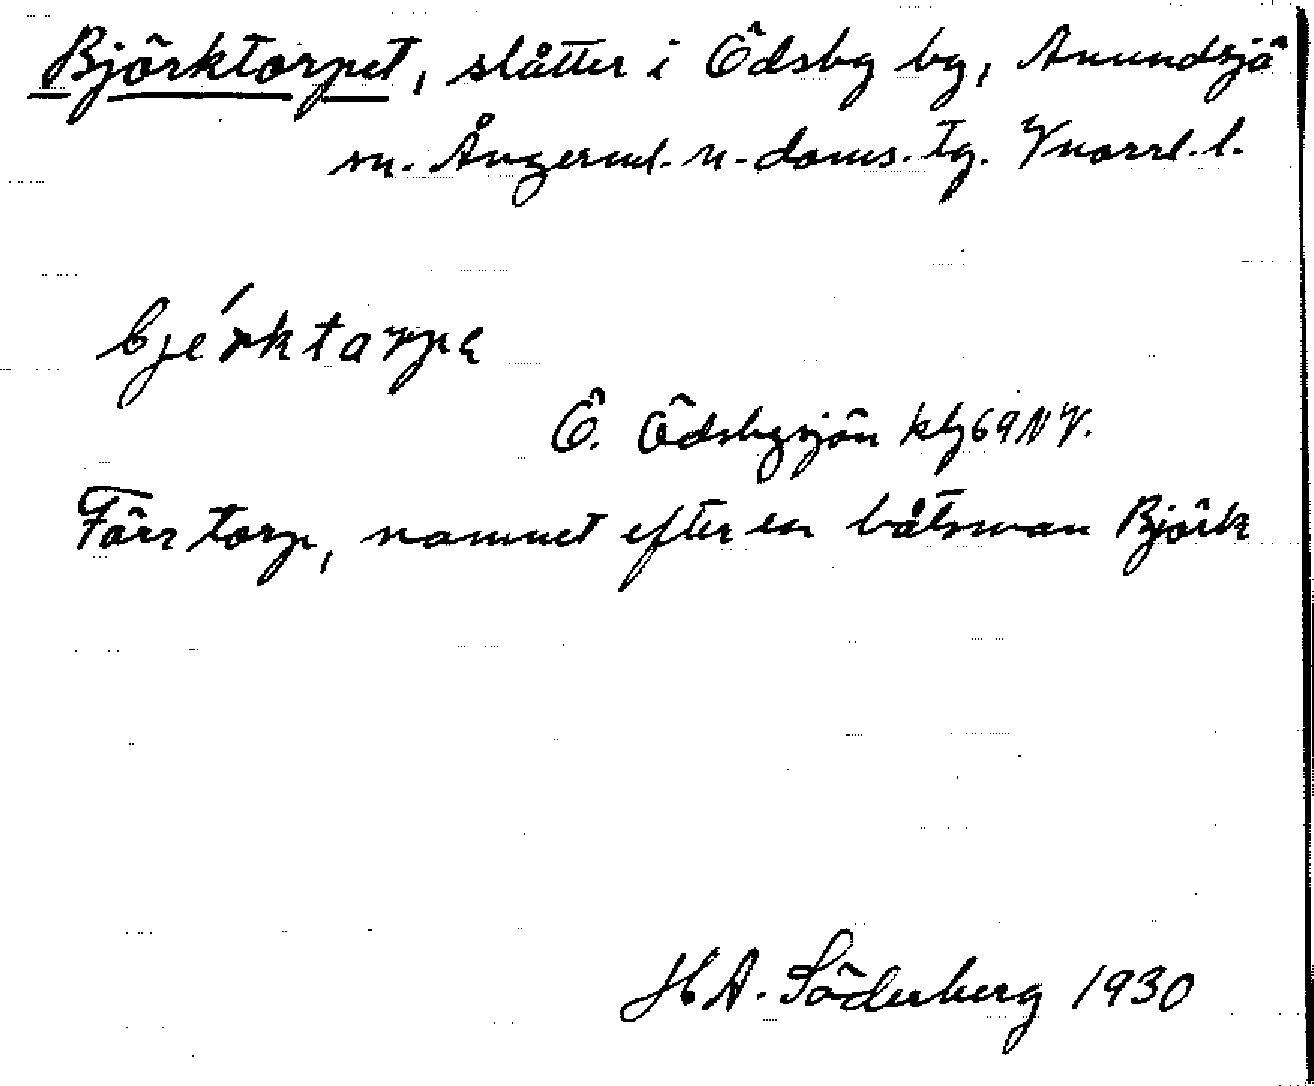 Björktorpet, slåtter i Ödsby by, Anundsjö
sn. Ångerml. n. doms. tg. Vnorrl. l.
bjérktarpe
Ö. Ödsbysjön kbg 69 NV.
Förr torp, namnet efter en båtsman Björk
H A. Söderberg 1930